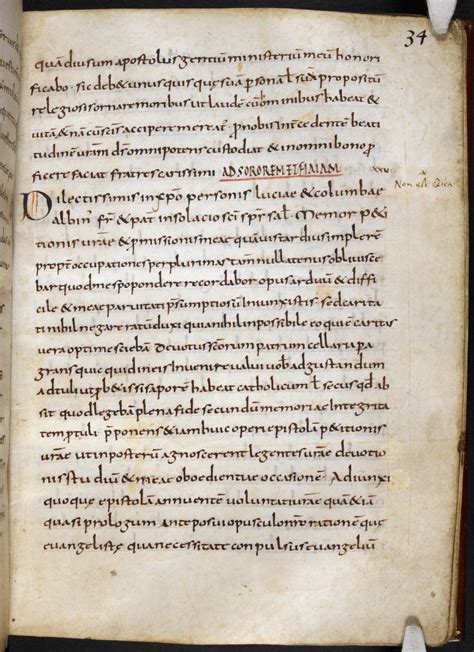 34
quā diu sum apostolus gentiū ministeriū meū honori
ficabo · sic deb& unus quisque suā personā ł suū propositū
relegiosis ornare moribus ut laudē cū omnibus habeat &
vitā & nā cū eis accipere mereat pro nobis intercedente beati
tudinē urām dr̄ omnipotens custodiat & in omni bono p
ficere faciat fratres carissimi AD SOROREM ET FILIAM
Non est Beda
Dilectissimis in xp̄o personis luciae & columbae
albin fr̄ & pat in solacio sc̄i spr̄ sal Memor p&i
tionis urae & promissionis meae quā vistar diu simplere
propt occupationes per plurimas tam nullatenus oblivisce
bar quod me spopondere recordabor opus arduū & diffi
cile & meae parvitati praesumptiosū iniunxistis · sed carita
ti nihil negare ratū duxi qua nihil impossibile eo que caritas
vera optime sciebā Devotus sc̄orum patrum cellaria pa
grans quicquid in eis invenire valui vob ad gustandum
adtuli ut prob&is si sapore habeat catholicum ł secus qd ab
sit quod legebā plena fide secundū memoriae integrita
tem protuli praeponens &iam huic operi epistolā p&itionis
vrae ut in posterū agnoscerent legentes urae devotio
nis studiū & meae oboedientiae occasionē Adiunxi
quoque epistolā annuentē voluntati urae quā &iā
quasi prologum anteposui opusculo nr̄o rationē que
evangelistę qua necessitate conpulsus evangeliū